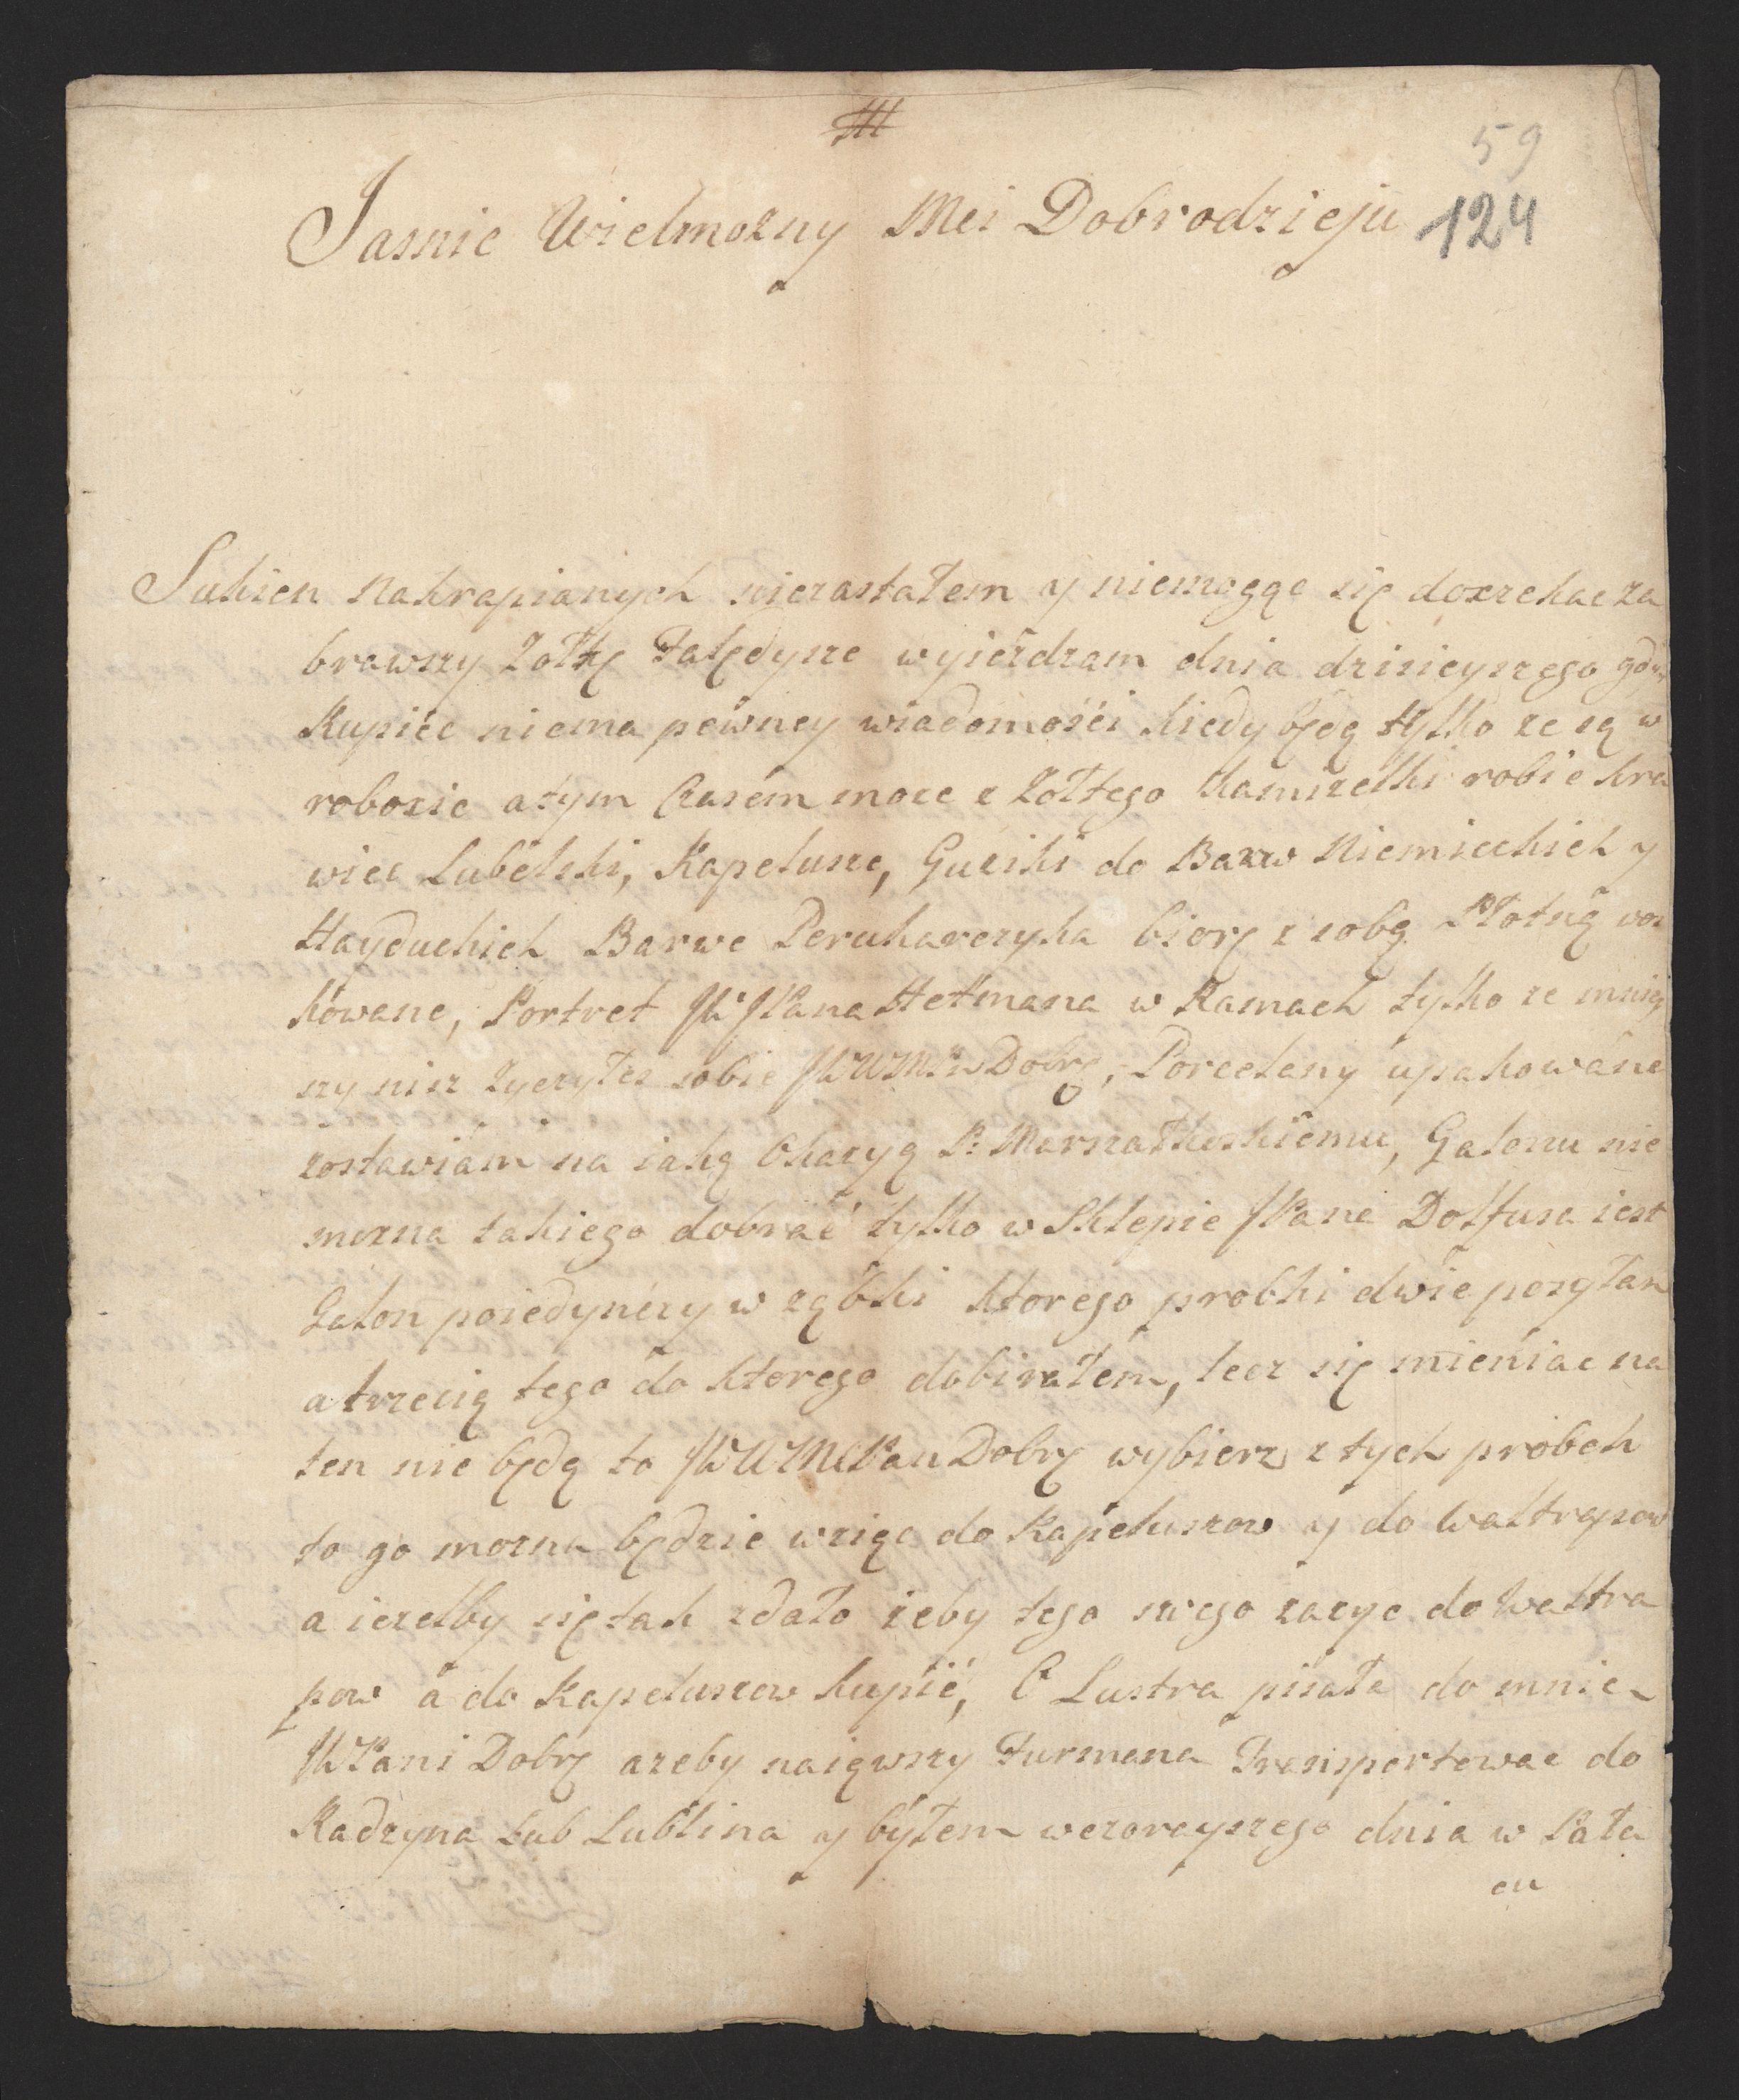 59
Jasnie Wielmozny Mci Dobrodzieju 124
Sukien Nakrapianych niezastałem y niemogąc się doczekac za
brawszy Zołtę Falędysze wyieżdzam dnia dzisieyszego gdyż
Kupiec niema pewney wiadomości kiedy będą tylko ze są w
robocie a tym Czasem moze z Zołtego Kamizelki robic kra
wiec Lubelski, Kapelusze, Guziki do Barw Niemieckich y
Hayduckich Barwe Perukarczyka biorę z sobą Płotną wos
kowane, Portret JW JPana Hetmana w Ramach tylko ze mniey
szy nisz zyczyłes sobie JWWMPan Dobrę, Porcelany upakowane
zostawiam na iaką Okazyą P: Marszałkoskiemu, Galonu nie
mozna takiego dobrać tylko w Sklepie JPana Dolfusa iest
Galon poiedynczy w ząbki ktorego probki dwie posyłam
a trzecią tego do ktorego dobirałem, lecz się mieniac na
ten nie będą to JWWMPan Dobrę wybierz z tych probek
to go mozna będzie wziąc do Kapeluszow y do Waltrapow
a iezelby się tak zdało żeby tego swego zazyc do Waltra
pow a do Kapeluszow kupić, O Lustra pisała do mnie
JWPani Dobrę azeby naiąwszy Furmana Transportowac do
Radzyna lub Lublina y byłem wczorayszego dnia w Pała
cu